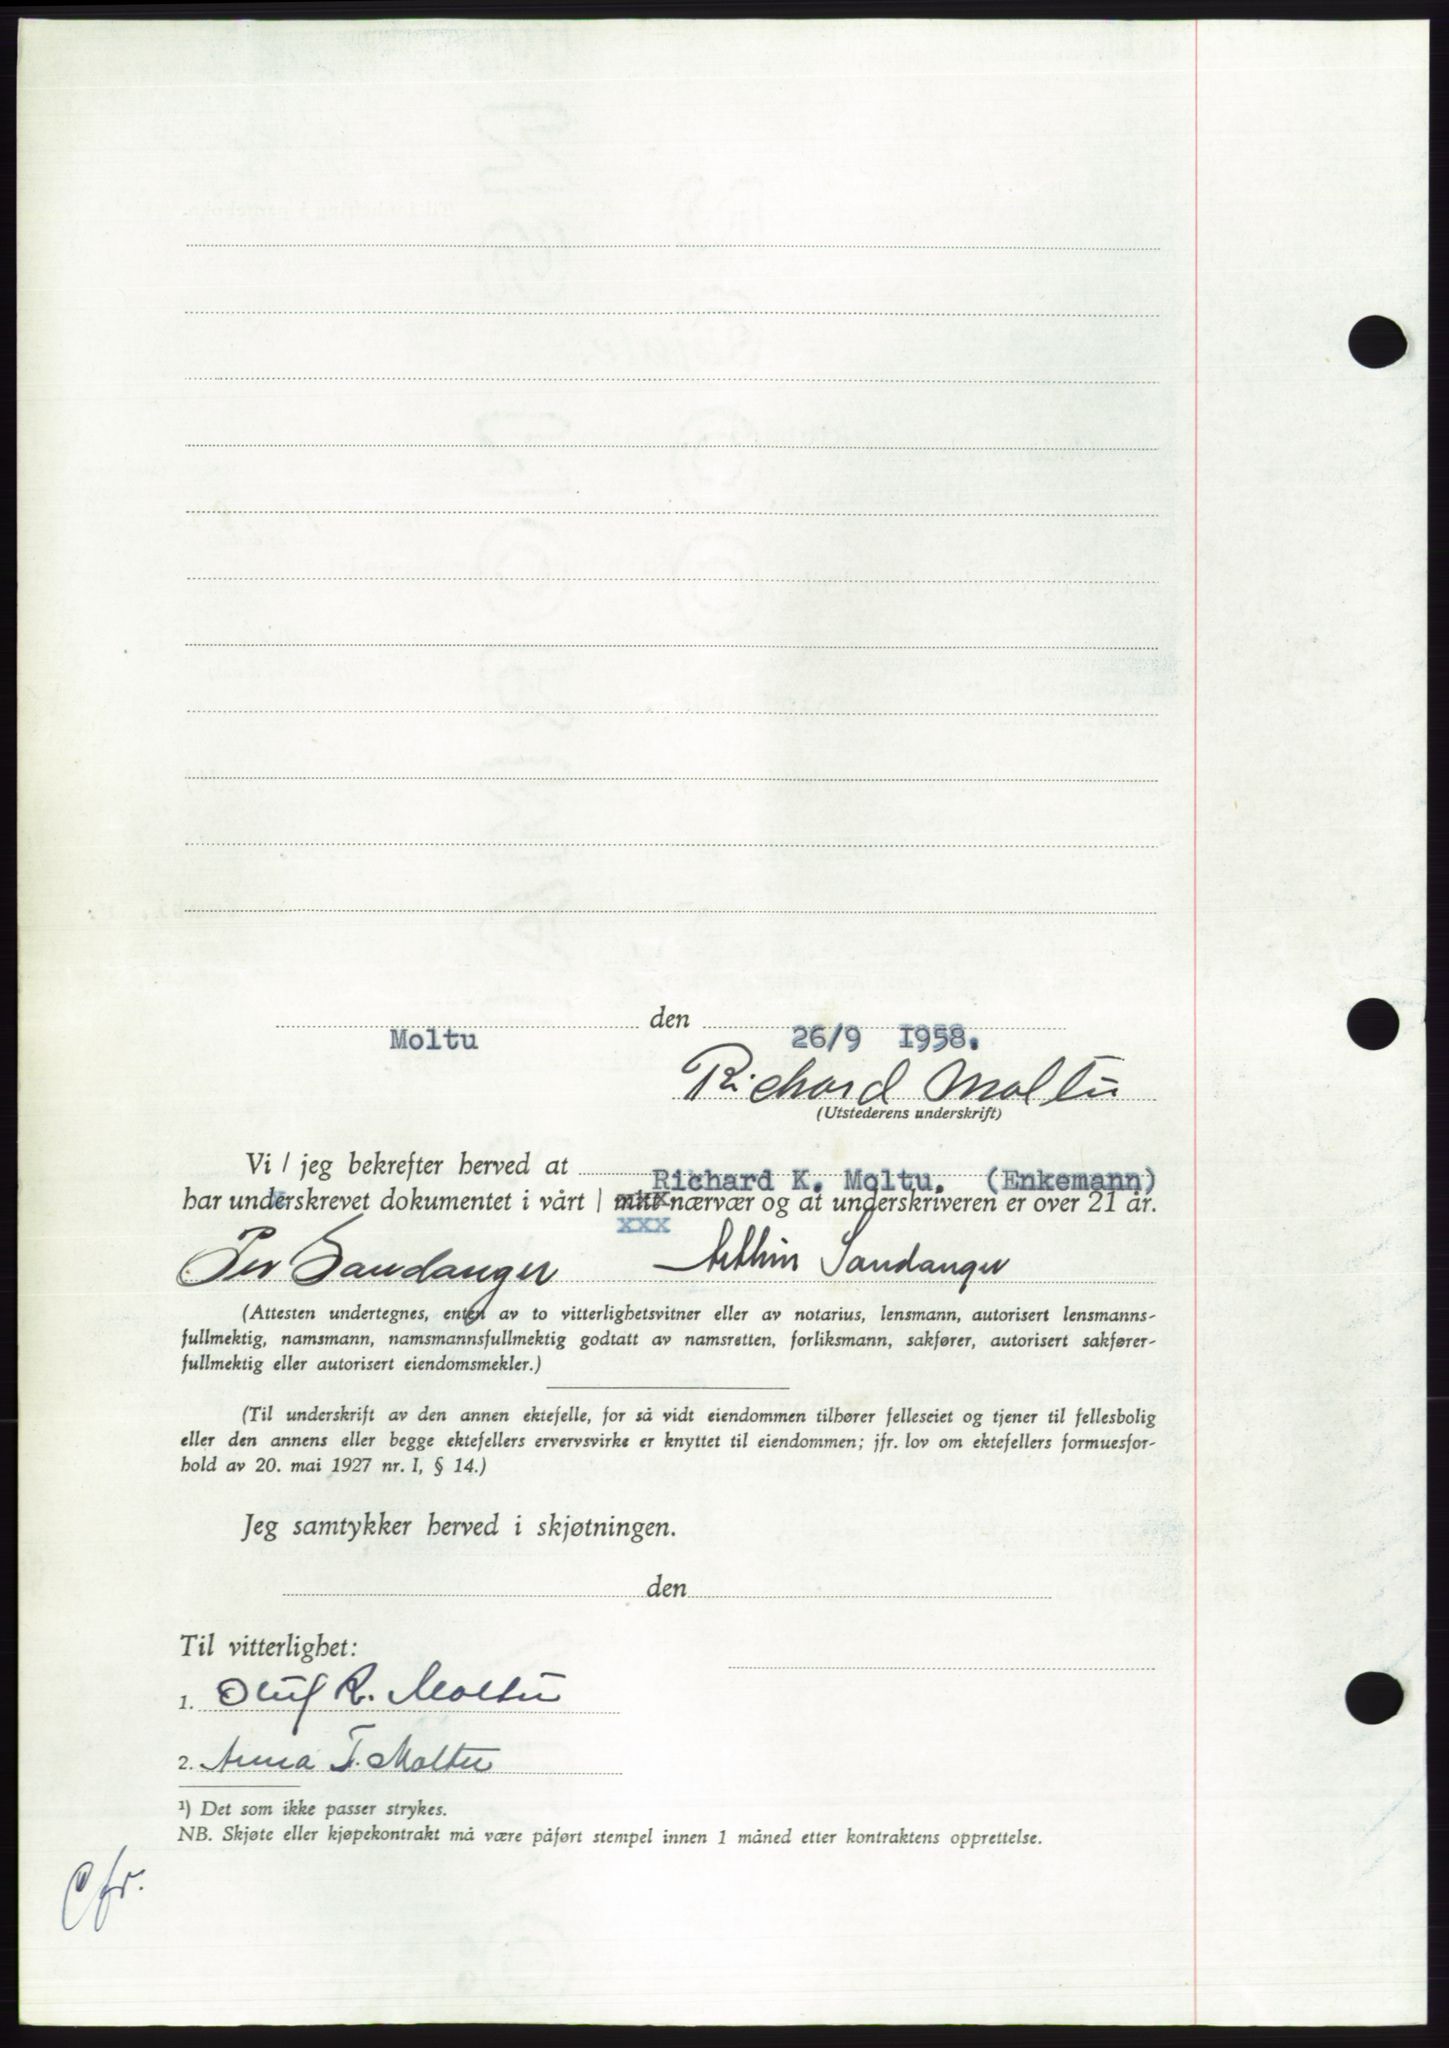 den
Moltu 26/9 1958.
Richard Moltu
(Utstederens underskrift)
Vi / jeg bekrefter herved at Richard K. Moltu. (Enkemann)
har underskrevet dokumentet i vårt / mitt nærvær og at underskriveren er over 21 år.
xxx
Per Sandanger Arthur Sandanger
(Attesten undertegnes, enten av to vitterlighetsvitner eller av notarius, lensmann, autorisert lensmanns-
fullmektig, namsmann, namsmannsfullmektig godtatt av namsretten, forliksmann, sakfører, autorisert sakfører-
fullmektig eller autorisert eiendomsmekler.)
(Til underskrift av den annen ektefelle, for så vidt eiendommen tilhører felleseiet og tjener til fellesbolig
eller den annens eller begge ektefellers ervervsvirke er knyttet til eiendommen; jfr. lov om ektefellers formuesfor-
hold av 20. mai 1927 nr. I, § 14.)
Jeg samtykker herved i skjøtningen.
den
Til vitterlighet:
1. Oluf R. Moltu
2. Anna T. Moltu
¹) Det som ikke passer strykes.
NB. Skjøte eller kjøpekontrakt må være påført stempel innen 1 måned etter kontraktens opprettelse.
Cfr.